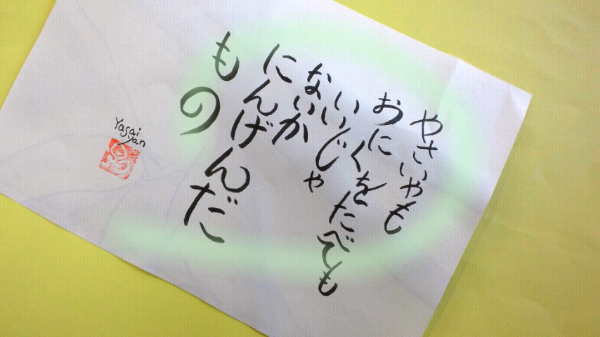 やさいやも
おにくをたべても
いいじゃ
ないか
にんげんだ
もの
Yasai
yan